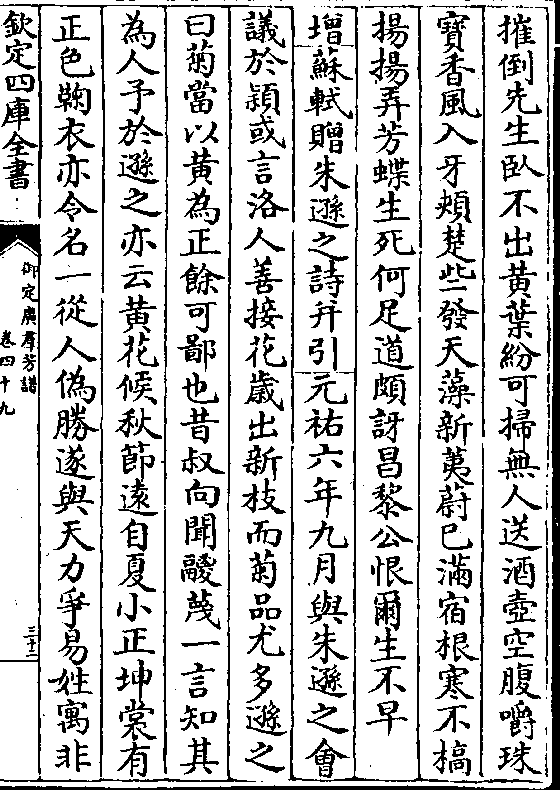 摧倒先生臥不出黃葉紛可掃無人送酒壺空腹嚼珠
寶香風入牙頰楚些發天藻新荑蔚已滿宿根寒不槁
揚揚弄芳蝶生死何足道頗訝昌黎公恨爾生不早
增蘇軾贈朱遜之詩并引元祐六年九月與朱遜之會
議於潁或言洛人善接花歲出新枝而菊品尤多遜之
曰菊當以黃為正餘可鄙也昔叔向聞鬷蔑一言知其
為人予於遜之亦云黃花候秋節遠自夏小正坤裳有
正色鞠衣亦令名一從人偽勝遂與天力爭易姓寓非
欽定四庫全書
御定廣群芳譜
卷四十九
三十二